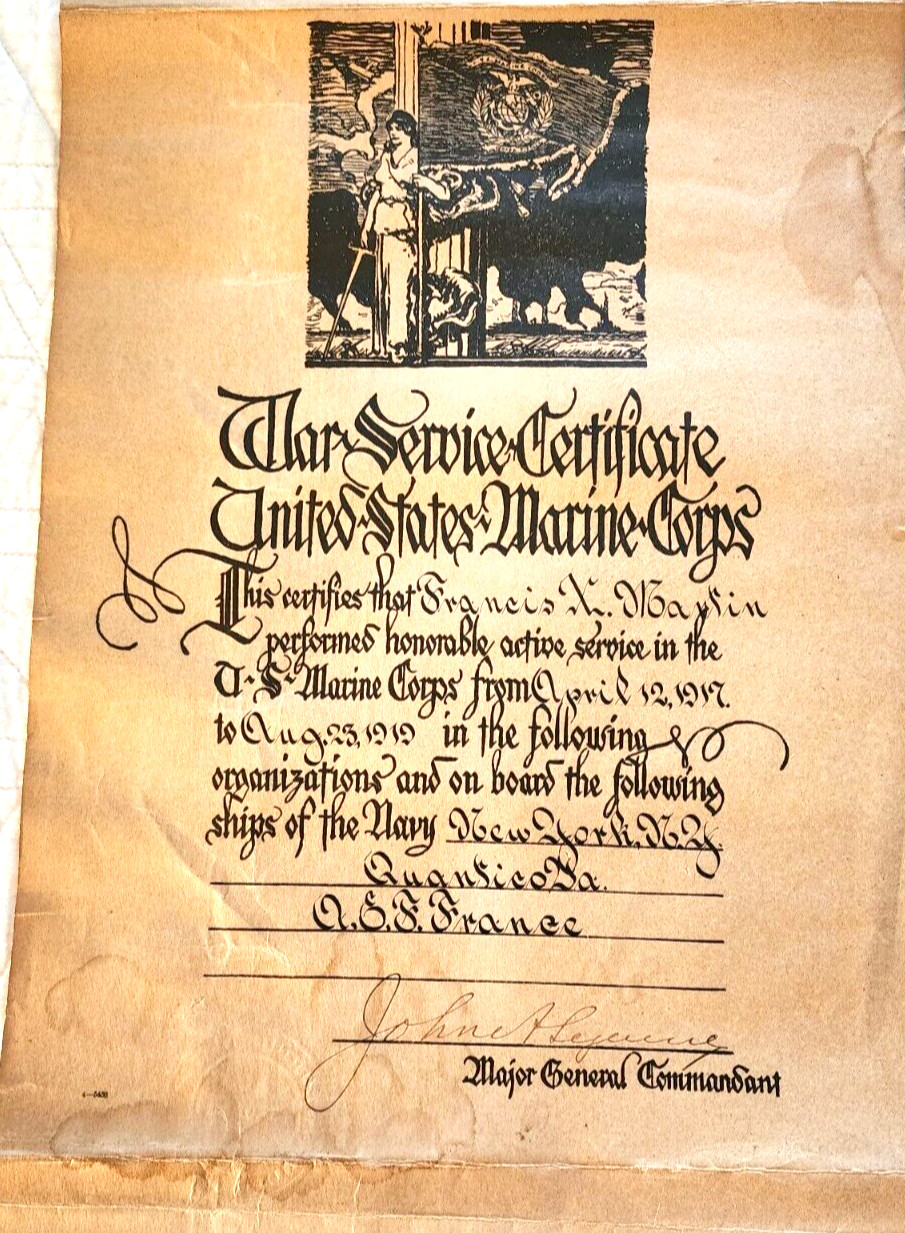 War Service Certificate
United States Marine Corps
This certifies that Francis X. Martin
performed honorable active service in the
U.S. Marine Corps from April 12, 1917.
to Aug. 23, 1919 in the following
organizations and on board the following
ships of the Navy New York, N.Y.
Quantico Va.
A.E.F. France
John A Lejeune
Major General Commandant